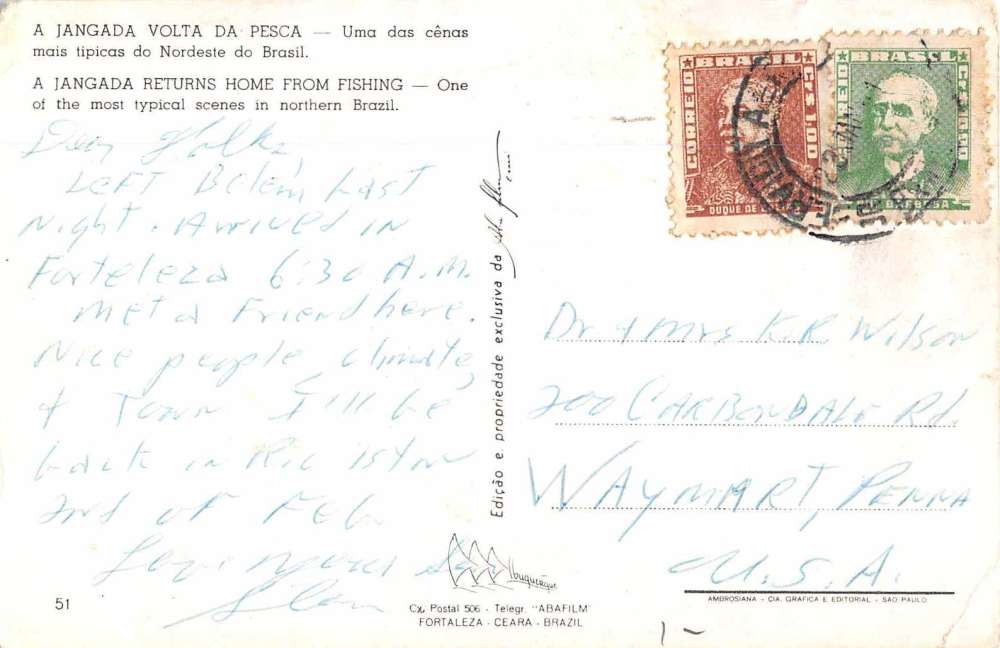 A JANGADA VOLTA DA PESCA — Uma das cênas
mais tipicas do Nordeste do Brasil.
A JANGADA RETURNS HOME FROM FISHING — One
of the most typical scenes in northern Brazil.
Dear Folks,
Left Belem Last
Night. Arrived in
Forteleza 6:30 A.M.
Met a Friend here.
Nice people, climate,
& Town I'll be
back in Rio 1st or
2nd of Feb
Love
51
Edição e propriedade exclusiva da
Albuquerque
Cx. Postal 506 - Telegr. "ABAFILM"
FORTALEZA - CEARA - BRAZIL
BRASIL
CORREIO
CR$ 1,00
DUQUE DE
BRASIL
CORREIO
BARBOSA
Dr & Mrs K.R. Wilson
200 CARBONDALE Rd.
WAYMART, PENNA
U.S.A.
AMBROSIANA - CIA. GRAFICA E EDITORIAL - SAO PAULO
1-